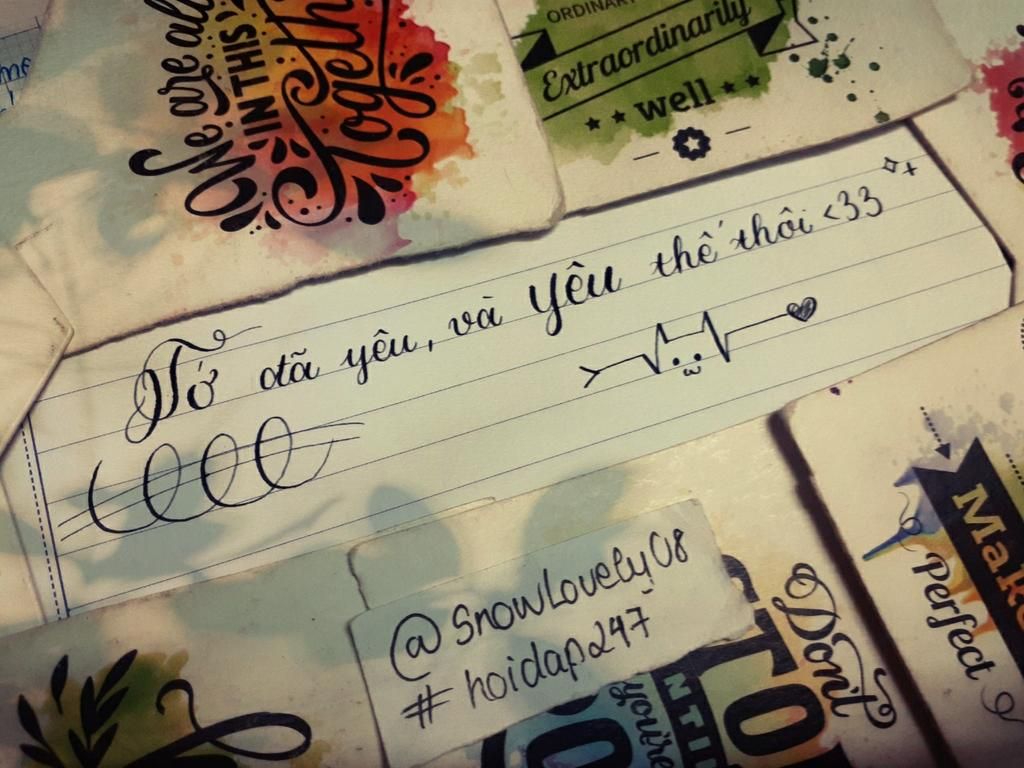 We are all
IN THIS
Together
ORDINARY
Extraordinarily
well
Tớ đã yêu, và yêu thế thôi <33
@SnowLovely_08
#hoidap247
Don't
STO
NTIL
you're
Make
Perfect